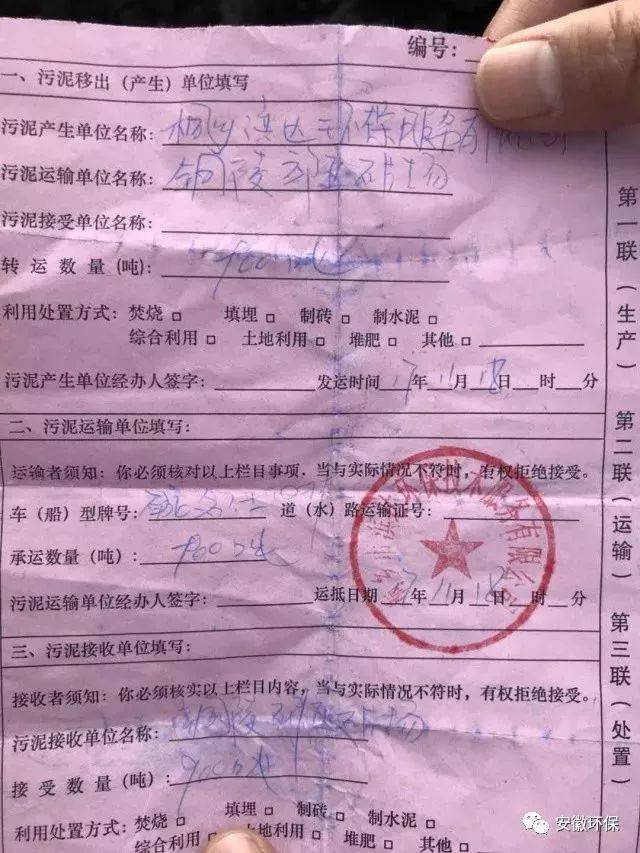 编号:
一、污泥移出(产生)单位填写
污泥产生单位名称:桐乡滨达环保服务有限公司
污泥运输单位名称:
污泥接受单位名称:
转运数量(吨):980吨
利用处置方式:焚烧□ 填埋□ 制砖□ 制水泥□
综合利用□ 土地利用□ 堆肥□ 其他□
污泥产生单位经办人签字: 发运时间17年11月18日 时 分
二、污泥运输单位填写:
运输者须知:你必须核对以上栏目事项,当与实际情况不符时,有权拒绝接受。
车(船)型牌号: 道(水)路运输证号:
承运数量(吨):980吨
污泥运输单位经办人签字: 运抵日期17年11月18日 时 分
三、污泥接收单位填写:
接收者须知:你必须核实以上栏目内容,当与实际情况不符时,有权拒绝接受。
污泥接收单位名称:
接受数量(吨):900吨
利用处置方式:焚烧□ 填埋□ 制砖□ 制水泥□
综合利用□ 土地利用□ 堆肥□ 其他□
第一联(生产) 第二联(运输) 第三联(处置)
技术服务有限公司
安徽环保